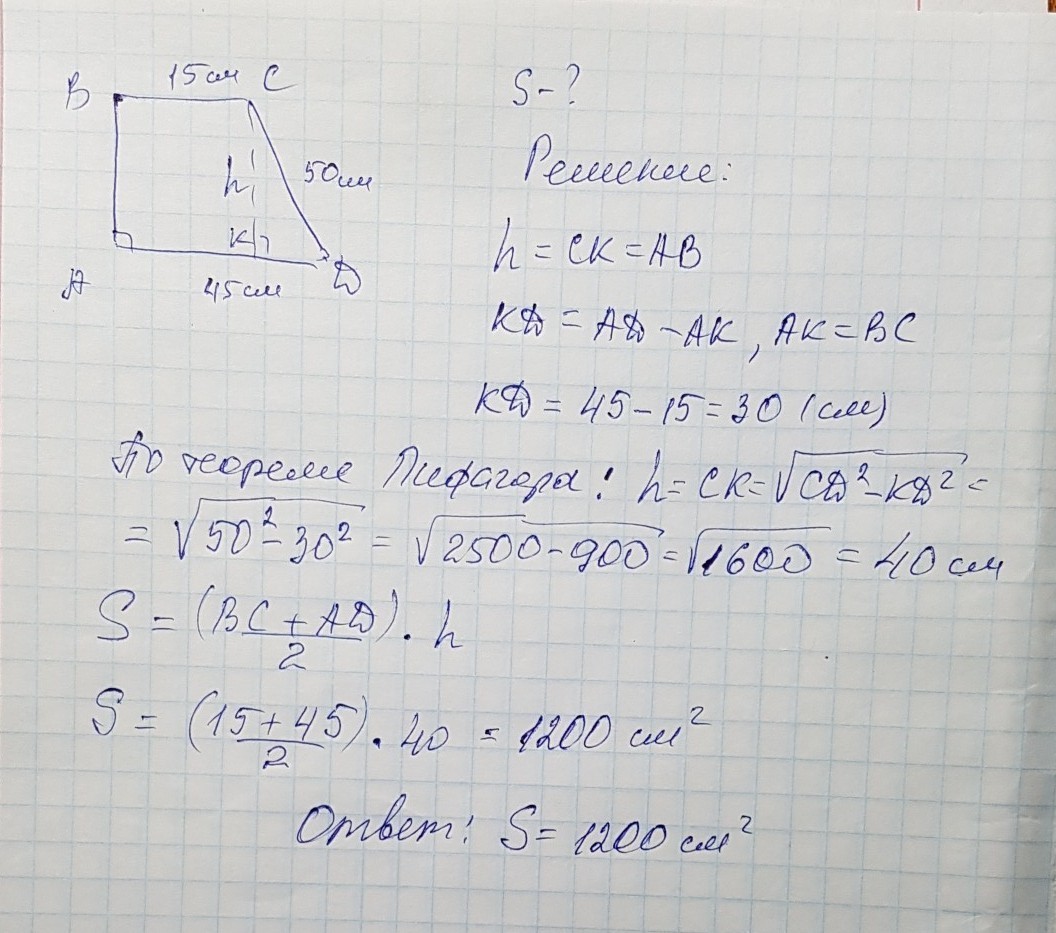 B 15 см C
S - ?
h 50 см
Решение:
K
A 45 см D
h = CK = AB
KD = AD - AK, AK = BC
KD = 45 - 15 = 30 (см)
По теореме Пифагора: h = CK = √CD² - KD² =
= √50² - 30² = √2500 - 900 = √1600 = 40 см
S = (BC + AD)/2 · h
S = (15 + 45)/2 · 40 = 1200 см²
Ответ: S = 1200 см²